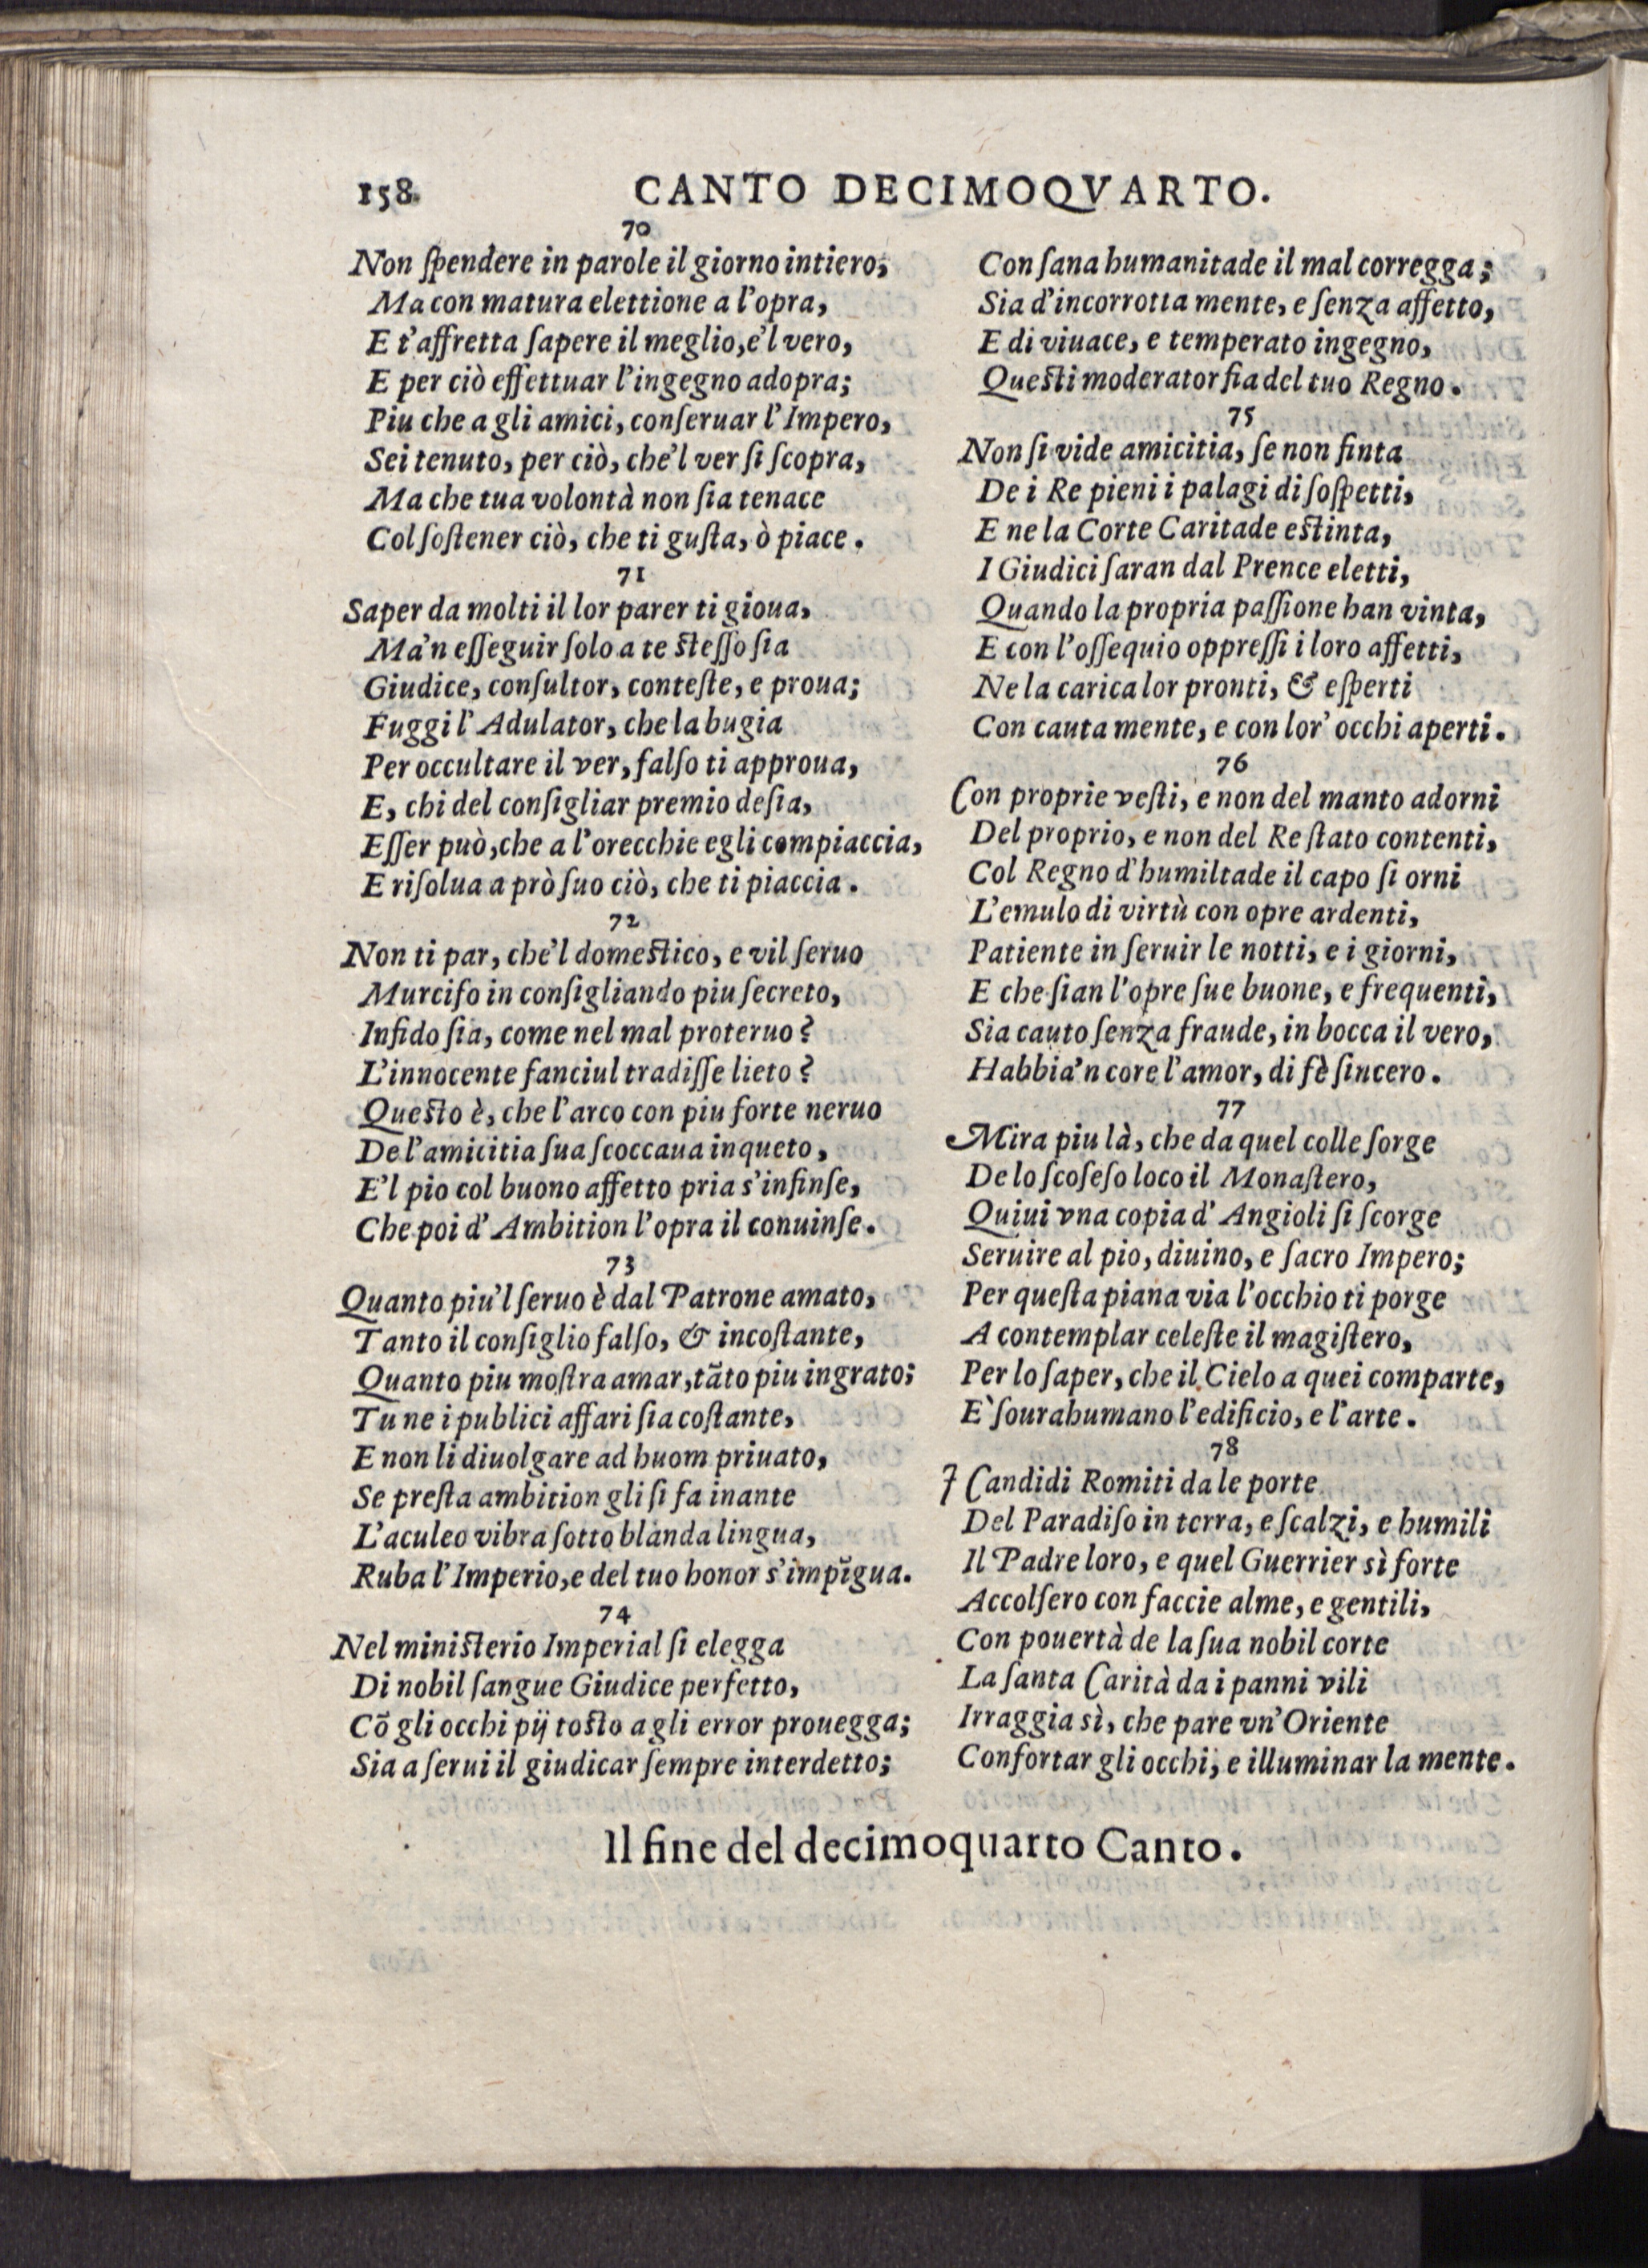 158. CANTO DECIMOQVARTO.
70
Non ſpendere in parole il giorno intiero,
Ma con matura elettione a l'opra,
E t'affretta ſapere il meglio, e'l vero,
E per ciò effettuar l'ingegno adopra;
Piu che a gli amici, conſeruar l'Impero,
Sei tenuto, per ciò, che'l ver ſi ſcopra,
Ma che tua volontà non ſia tenace
Col ſoſtener ciò, che ti guſta, ò piace.
71
Saper da molti il lor parer ti gioua,
Ma'n eſſeguir ſolo a te ſteſſo ſia
Giudice, conſultor, conteſte, e proua;
Fuggi l'Adulator, che la bugia
Per occultare il ver, falſo ti approua,
E, chi del conſigliar premio deſia,
Eſſer può, che a l'orecchie egli compiaccia,
E riſolua a prò ſuo ciò, che ti piaccia.
72
Non ti par, che'l domeſtico, e vil ſeruo
Murcifo in conſigliando piu ſecreto,
Infido ſia, come nel mal proteruo?
L'innocente fanciul tradiſſe lieto?
Queſto è, che l'arco con piu forte neruo
De l'amicitia ſua ſcoccaua inqueto,
E'l pio col buono affetto pria s'infinſe,
Che poi d'Ambition l'opra il conuinſe.
73
Quanto piu'l ſeruo è dal Patrone amato,
Tanto il conſiglio falſo, & incoſtante,
Quanto piu moſtra amar, tãto piu ingrato;
Tu ne i publici affari ſia coſtante,
E non li diuolgare ad huom priuato,
Se preſta ambition gli ſi fa inante
L'aculeo vibra ſotto blanda lingua,
Ruba l'Imperio, e del tuo honor s'impĩgua.
74
Nel miniſterio Imperial ſi elegga
Di nobil ſangue Giudice perfetto,
Cõ gli occhi pij toſto a gli error prouegga;
Sia a ſerui il giudicar ſempre interdetto;
Con ſana humanitade il mal corregga;
Sia d'incorrotta mente, e ſenza affetto,
E di viuace, e temperato ingegno,
Queſti moderator fia del tuo Regno.
75
Non ſi vide amicitia, ſe non finta
De i Re pieni i palagi di ſoſpetti,
E ne la Corte Caritade eſtinta,
I Giudici ſaran dal Prence eletti,
Quando la propria paſſione han vinta,
E con l'oſſequio oppreſſi i loro affetti,
Ne la carica lor pronti, & eſperti
Con cauta mente, e con lor' occhi aperti.
76
Con proprie veſti, e non del manto adorni
Del proprio, e non del Re ſtato contenti,
Col Regno d'humiltade il capo ſi orni
L'emulo di virtù con opre ardenti,
Patiente in ſeruir le notti, e i giorni,
E che ſian l'opre ſue buone, e frequenti,
Sia cauto ſenza fraude, in bocca il vero,
Habbia'n core l'amor, di fè ſincero.
77
Mira piu là, che da quel colle ſorge
De lo ſcoſeſo loco il Monaſtero,
Quiui vna copia d'Angioli ſi ſcorge
Seruire al pio, diuino, e ſacro Impero;
Per queſta piana via l'occhio ti porge
A contemplar celeſte il magiſtero,
Per lo ſaper, che il Cielo a quei comparte,
E` ſourahumano l'edificio, e l'arte.
78
I Candidi Romiti da le porte
Del Paradiſo in terra, e ſcalzi, e humili
Il Padre loro, e quel Guerrier sì forte
Accolſero con faccie alme, e gentili,
Con pouertà de la ſua nobil corte
La ſanta Carità da i panni vili
Irraggia sì, che pare vn'Oriente
Confortar gli occhi, e illuminar la mente.
Il fine del decimoquarto Canto.